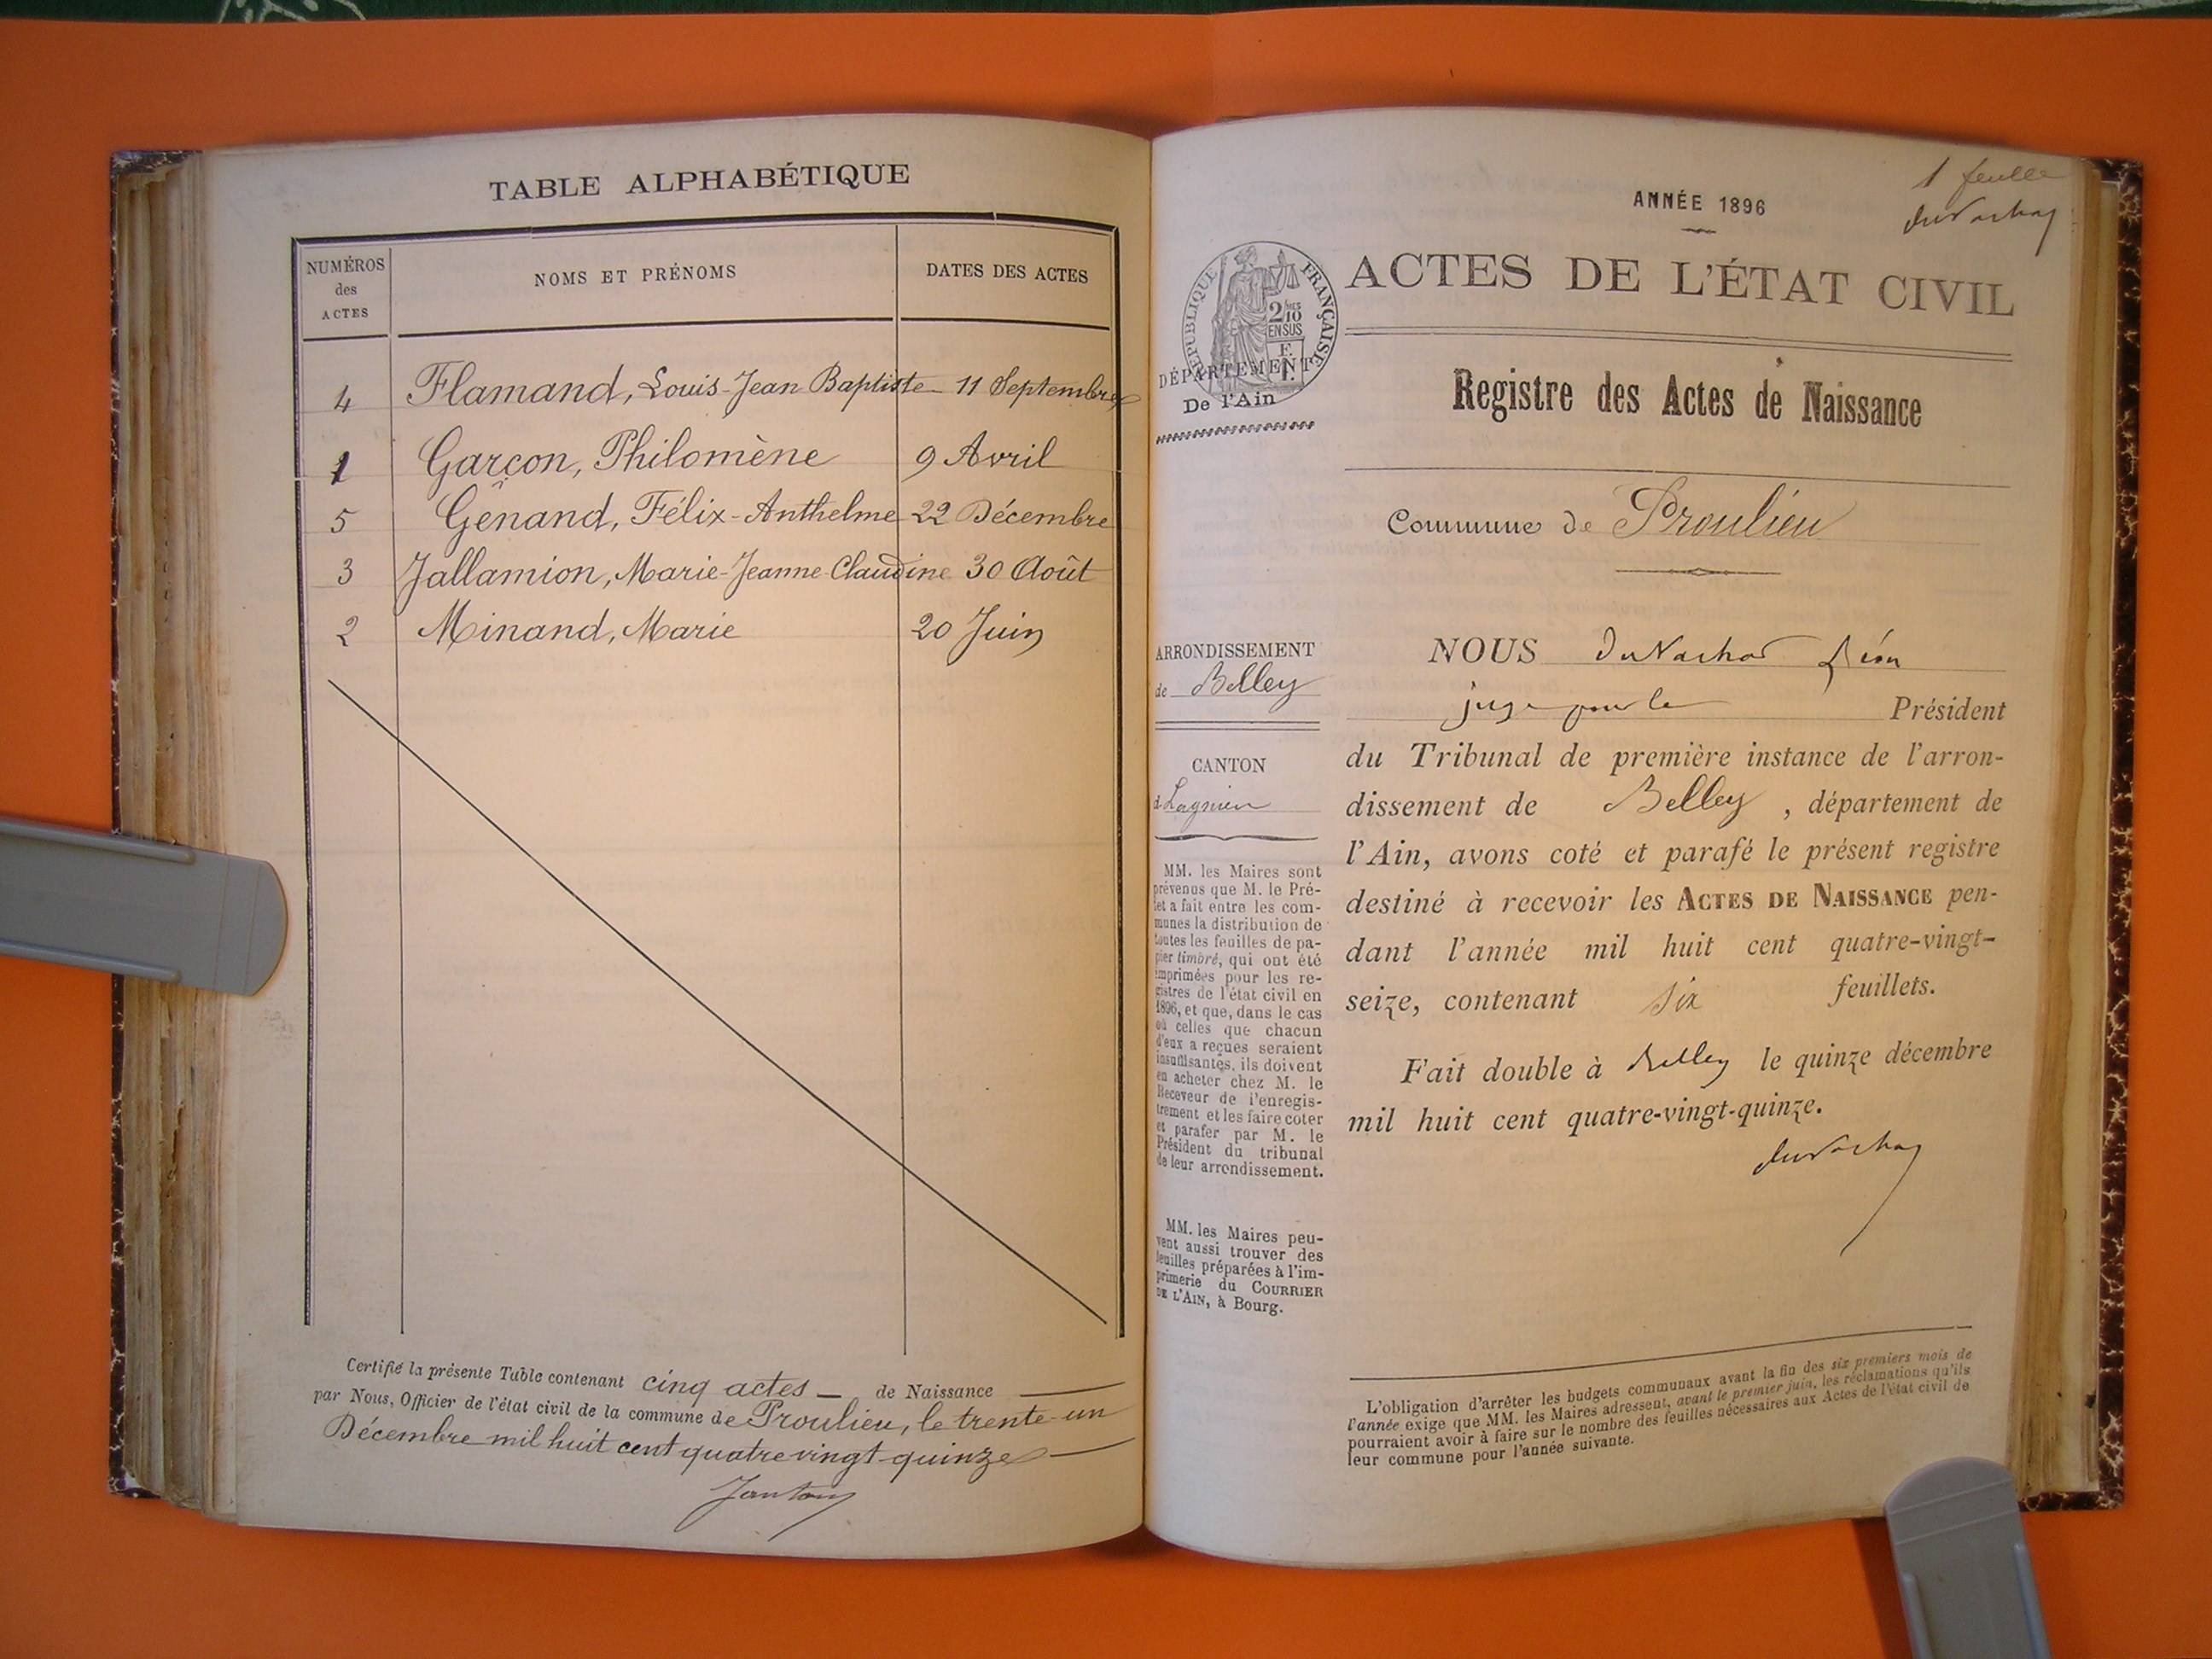 TABLE ALPHABÉTIQUE
NUMÉROS des ACTES
NOMS ET PRÉNOMS
DATES DES ACTES
4 Flamand, Louis-Jean Baptiste - 11 Septembre
1 Garçon, Philomène 9 Avril
5 Génand, Félix-Anthelme 22 Décembre
3 Jallamion, Marie-Jeanne-Claudine 30 Août
2 Minand, Marie 20 Juin
Certifié la présente Table contenant cinq actes — de Naissance
par Nous, Officier de l'état civil de la commune de Proulieu, le trente-un
Décembre mil huit cent quatre vingt-quinze
1 feuille
ANNÉE 1896
ACTES DE L'ÉTAT CIVIL
RÉPUBLIQUE FRANÇAISE
2/10
EN SUS
DÉPARTEMENT
De l'Ain
Registre des Actes de Naissance
Commune de Proulieu
ARRONDISSEMENT
de Belley
CANTON
d Lagnieu
MM. les Maires sont
prévenus que M. le Pré-
fet a fait entre les com-
munes la distribution de
toutes les feuilles de pa-
pier timbré, qui ont été
imprimées pour les re-
gistres de l'état civil en
1896, et que, dans le cas
où celles que chacun
d'eux a reçues seraient
insuffisantes, ils doivent
en acheter chez M. le
Receveur de l'enregis-
trement et les faire coter
et parafer par M. le
Président du tribunal
de leur arrondissement.
MM. les Maires peu-
vent aussi trouver des
feuilles préparées à l'im-
primerie du COURRIER
DE L'AIN, à Bourg.
NOUS Léon
juge pour le Président
du Tribunal de première instance de l'arron-
dissement de Belley, département de
l'Ain, avons coté et parafé le présent registre
destiné à recevoir les ACTES DE NAISSANCE pen-
dant l'année mil huit cent quatre-vingt-
seize, contenant six feuillets.
Fait double à Belley le quinze décembre
mil huit cent quatre-vingt-quinze.
L'obligation d'arrêter les budgets communaux avant la fin des six premiers mois de
l'année exige que MM. les Maires adressent, avant le premier juin, les réclamations qu'ils
pourraient avoir à faire sur le nombre des feuilles nécessaires aux Actes de l'état civil de
leur commune pour l'année suivante.